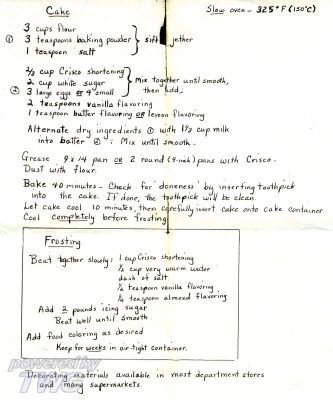 Cake
Slow oven - 325°F (150°C)
3 cups flour
① 3 teaspoons baking powder } sift jether
1 teaspoon salt
2/3 cup Crisco shortening
2 cup white sugar
② 3 large eggs or 4 small
Mix together until smooth,
then add;
2 teaspoons vanilla flavoring
1 teaspoon butter flavoring or lemon flavoring
Alternate dry ingredients ① with 1 1/3 cup milk
into batter ② : Mix until smooth.
Grease 9 x 14 pan or 2 round (9-inch) pans with Crisco.
Dust with flour.
Bake 40 minutes - Check for 'doneness' by inserting toothpick
into the cake. If done, the toothpick will be clean.
Let cake cool 10 minutes, then carefully invert cake onto cake container
Cool completely before frosting
Frosting
Beat together slowly: 1 cup Crisco shortening
1/2 cup very warm water
dash of salt
1/2 teaspoon vanilla flavoring
1/4 teaspoon almond flavoring
Add 2 pounds icing sugar
Beat well until smooth
Add food coloring as desired
Keep for weeks in air-tight container.
powered by
Decorating materials available in most department stores
and many supermarkets.